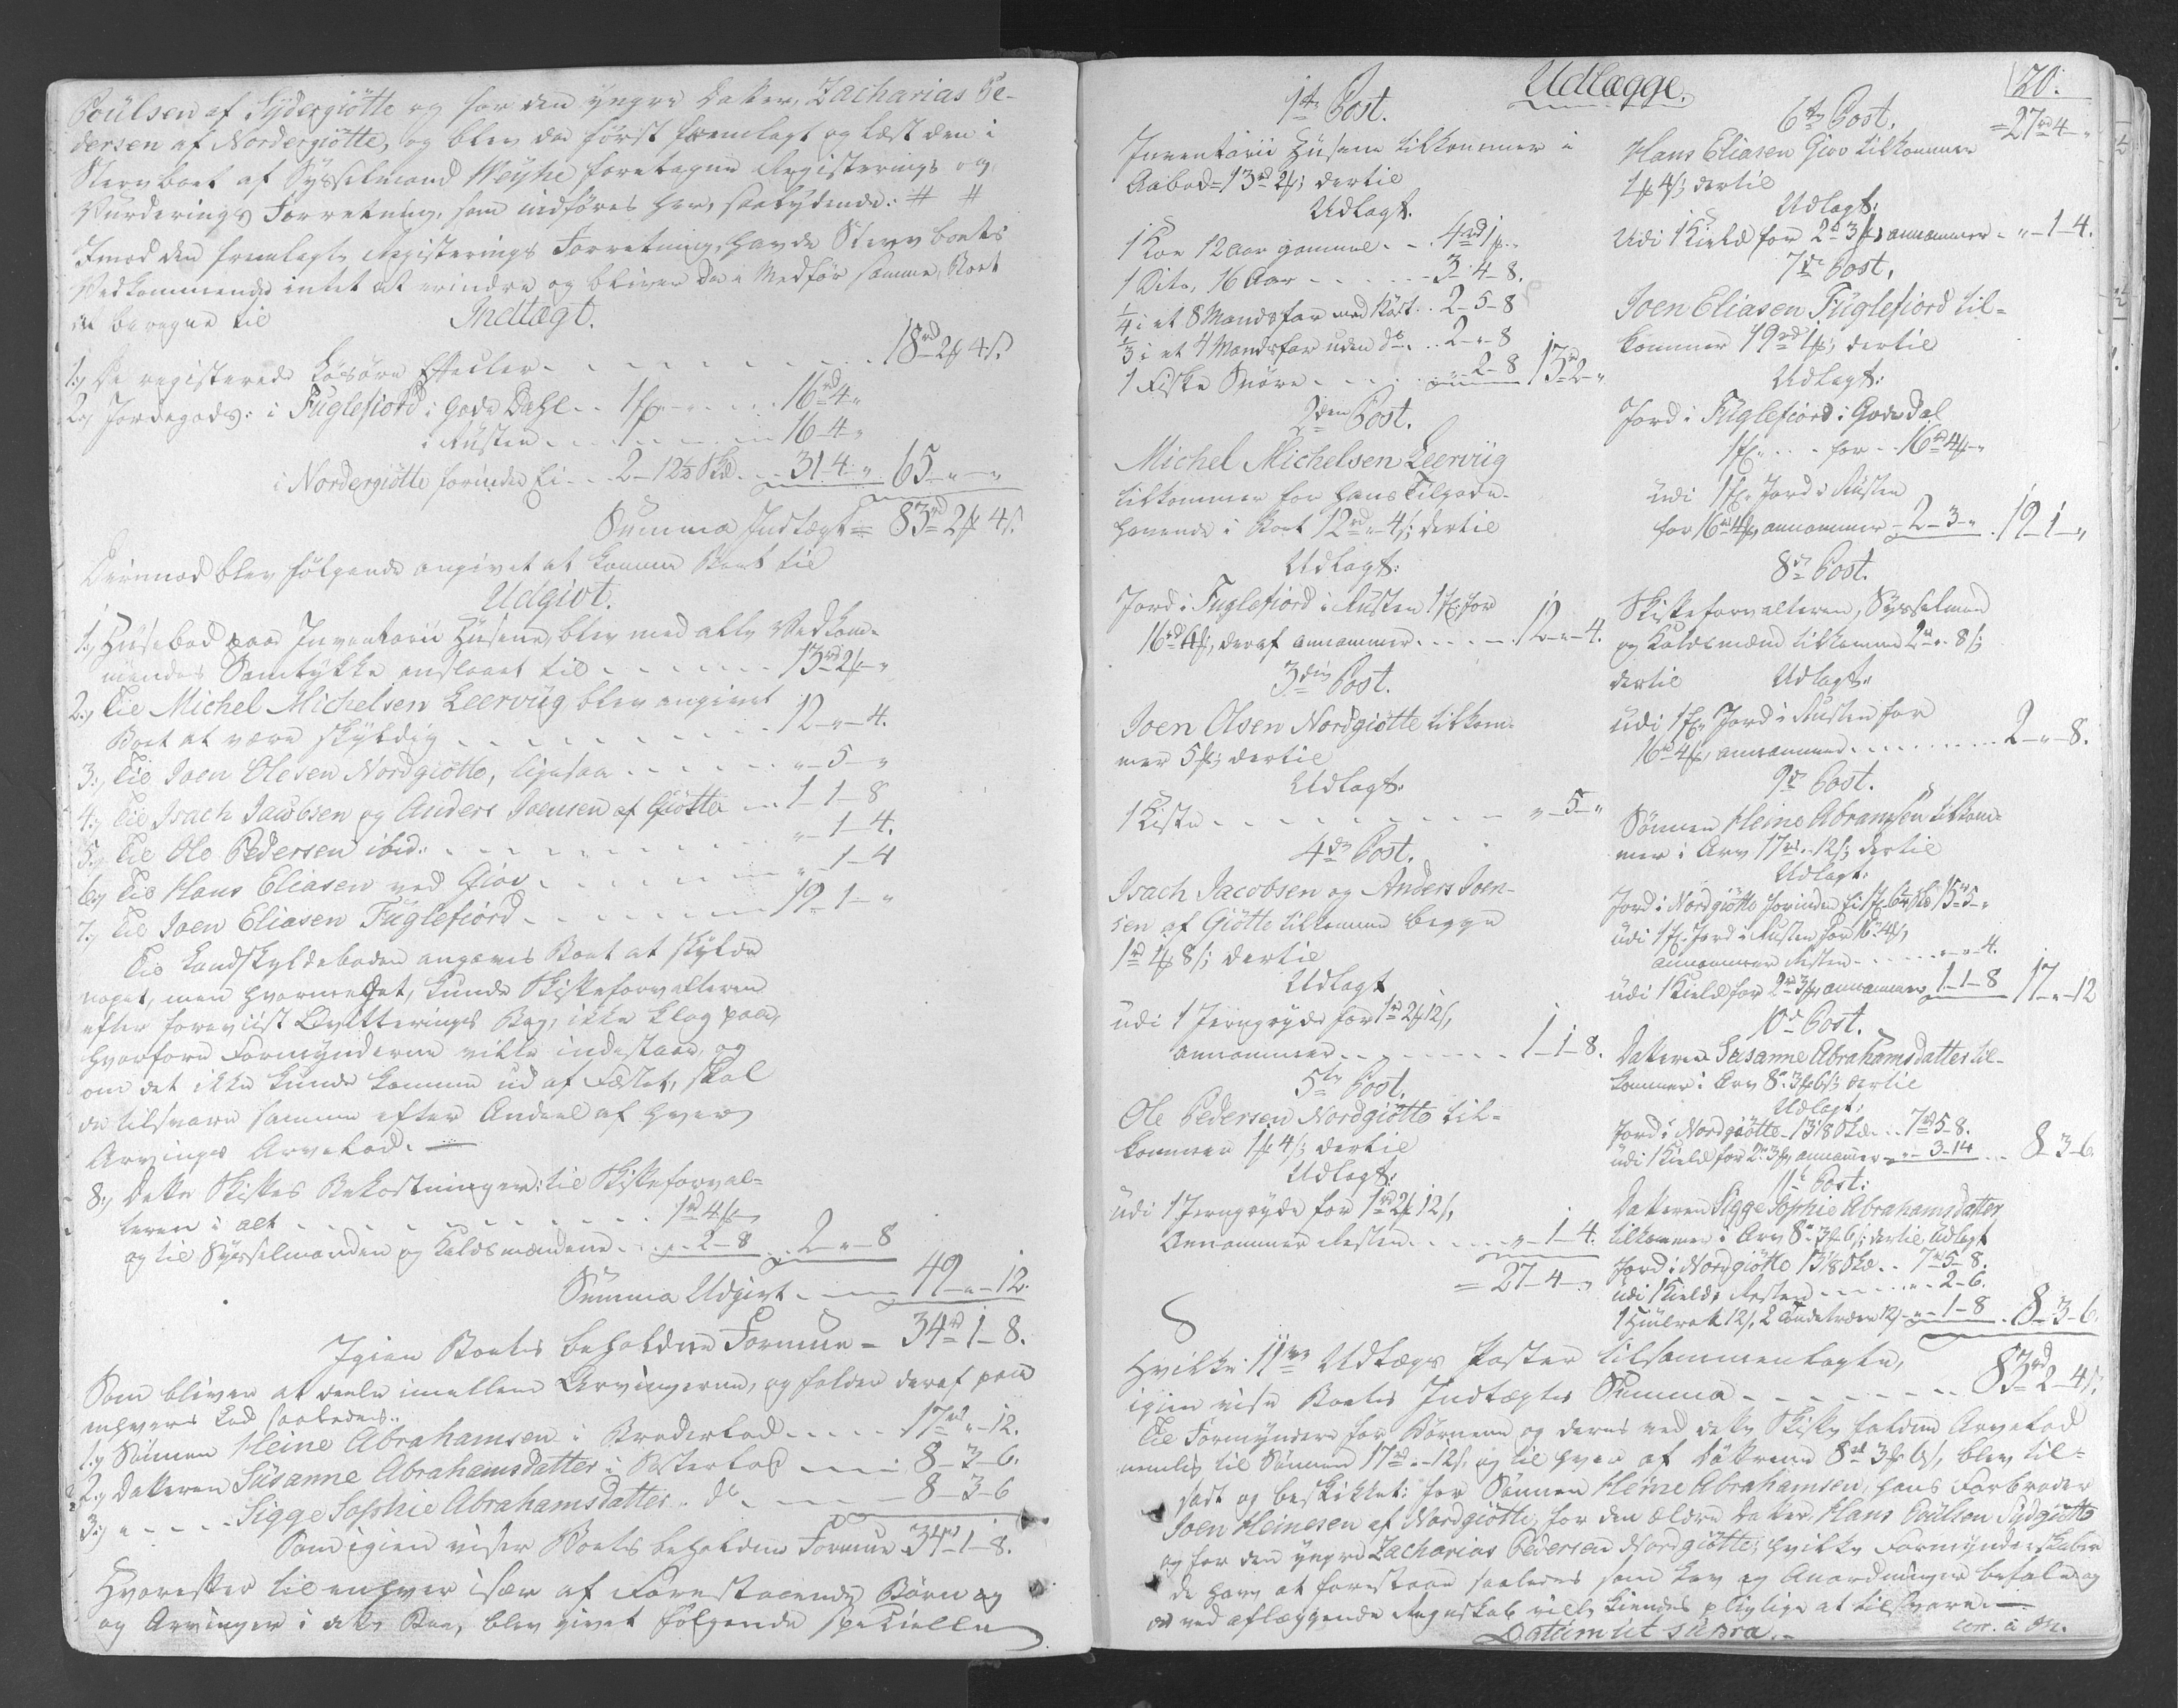 Poülsen af Sydergiötte og for den yngre Datter, Zacharias Pe-
dersen af Nordergiötte, og blev da først fremlagt og læst den i
Stervboet af Sysselmand Weyhe foretagne Registerings og
Vurderings Forretning, som indføres her, saalydende: # #
Imod den fremlagte Registerings Forretning, havde Stervboets
Vedkommende intet at erindre og bliver da i Medför samme, Boet
at beregne til
Indtægt.
1., De registerede Lösöre Effecter - - - - - - 18rd 2 4 s.
2., Jordegods: i Fuglefiord i Gode Dahl - - 1 - - - - 16rd 4 "
i Rusten - - - 1 - - - - 16-4-"
i Nordergiötte forinden Ei - - 2-12½ Skd. - - 31-4-" 65-"-"
Summa Indtægt = 83rd 2 4 s.
Derimod blev følgende angivet at komme Boet til
Udgivt.
1., Huusebod paa Inventarii Husene, blev med alle Vedkom-
mendes Samtykke anslaaet til - - - - - - 13rd 2 -"
2., Til Michel Michelsen Leervüg blev angivet
Boet at være skyldig - - - - - - - - - 12-"-4.
3., Til Joen Olesen Nordgiötte, ligesaa - - - - - - "-5-"
4., Til Isach Jacobsen og Anders Joensen af Giötte - - 1-1-8
5., Til Ole Pedersen ibid: - - - - - - - - - "-1-4.
6., Til Hans Eliasen ved Giov - - - - - - - "-1-4
7., Til Joen Eliasen Fuglefiord - - - - - - - 19-1-"
Til Landskyldeboden angaves Boet at skylde
noget, men hvormeget, kunde Skifteforvalteren
efter foreviist Qvitterings Bog, ikke klog paa,
hvorfore Formynderne ville indestaae, og
om det ikke kunde komme ud af Fæstet, skal
de tilsvare samme efter Andeel af hver
Arvinges Arvelod. -
8., Dette Skiftes Bekostninger: til Skifteforval-
teren i alt - - - - - - - - - - 1rd 4 -"
og til Sysselmanden og Tolvmændene - - "-2-8 - - 2-"-8
Summa Udgivt - - - 49-"-12.
Igien Boets beholdne Formue = 34rd 1-8.
Som bliver at deele imellem Arvingerne, og falder deraf paa
enhvers Lod saaledes:
1., Sönnen Heine Abrahamsen i Broderlod - - - - - 17rd "-12.
2., Datteren Susanne Abrahamsdatter i Søsterlod - - - 8-3-6.
3., " - - - - Sigge Sophie Abrahamsdatter - do - - - - 8-3-6
Som igien viser Boets beholdne Formue 34rd 1-8.
Hvorefter til enhver især af Forestaaende Börn og
og Arvinger i dette Boe, blev givet følgende specielle
Udlægge.
20.
1te Post.
Inventarii Husene tilkommer i
Aabod = 13rd 2; dertil
Udlagt.
1 Koe 12 aar gammel - - - 4rd 1 -
1 Dito, 16 Aar - - - - - 3-4-8.
¼ i et 8 Mandsfar med Kost - - 2-5-8
⅓ i et 4 Mandsfar uden do - - 2-"-8
1 Fiske Snöre - - - - "-2-8 13rd 2-"
2den Post.
Michel Michelsen Leervüg
tilkommer for hans Tilgode-
havende i Boet 12rd "-4 s; dertil
Udlagt:
Jord i Fuglefiord i Rusten 1 for
16rd 4, deraf annammer - - - - - 12-"-4.
3die Post.
Joen Olsen Nordgiötte tilkom-
mer 5; dertil
Udlagt:
1 Kiste - - - - - - - - - - "-5-"
4de Post.
Isach Jacobsen og Anders Joen-
sen af Giötte tilkomme begge
1rd 1 8 s; dertil
Udlagt
udi 1 Jerngryde for 1rd 2 12 s,
annammer - - - - - - - - 1-1-8.
5te Post.
Ole Pedersen Nordgiötte til-
kommer 1 4 s; dertil
Udlagt:
udi 1 Jerngryde for 1rd 2 12 s,
Annammer Resten - - - - - "-1-4.
= 27-4-"
= 27rd 4 - "
6te Post.
Hans Eliasen Giov tilkommer
1 4 s; dertil
Udlagt:
Udi 1 Kield for 2rd 3, annammer - "-1-4.
7de Post.
Joen Eliasen Fuglefiord til-
kommer 19rd 1; dertil
Udlagt:
Jord i Fuglefiord i Gode Dal
1 - - - for - - 16rd 4 -"
udi 1 Jord i Rusten
for 16rd 4, annammer - 2-3-" . 19-1-"
8de Post.
Skifteforvalteren, Sysselmand
og Tolvmænd tilkomme 2rd "-8 s;
dertil Udlagt:
udi 1 Jord i Rusten for
16rd 4, annammer - - - - - - - 2-"-8.
9de Post.
Sönnen Heine Abramsen tilkom-
mer i Arv 17rd "-12 s; dertil
Udlagt:
Jord i Nordgiötte forinden Ei 1 6¼ Skd 15rd 5-"
udi 1 Jord i Rusten for 16rd 4,
annammer Resten - - - - - "-"-4.
udi 1 Kield for 2rd 3, annammer 1-1-8 17-"-12
10de Post.
Datteren Susanne Abrahamsdatter til-
kommer i Arv 8rd 3 6 s; dertil
Udlagt:
Jord i Nordgiötte - 13⅛ Skd. - - 7rd 5-8.
udi 1 Kield for 2rd 3, annammer - "-3-14 - - 8-3-6
11te Post:
Datteren Sigge Sophie Abrahamsdatter
tilkommer i Arv 8rd 3 6 s; dertil Udlagt
Jord i Nordgiötte 13⅛ Skd. - - 7rd 5-8.
udi 1 Kield, Resten - - - - - "-2-6.
1 12 s, 2 12 s - "-1-8 . 8-3-6.
Hvilke 11ve Udlægs Poster tilsammenlagte,
igien vise Boets Indtægts Summa - - - - - - - - 83rd 2-4 s.
Til Formyndere for Börnene og deres ved dette Skifte faldne Arvelod
nemlig til Sönnen 17rd "-12 s, og til hver af Döttrene 8rd 3 6 s, blev til-
sadt og beskikket: for Sönnen Heine Abrahamsen, hans Farbroder
Joen Heinesen af Nordgiötte, for den ældre Datter, Hans Poulsen Sydgiötte
og for den yngre Zacharias Pedersen Nordgiötte; hvilke Formynderskaber
de have at forestaae saaledes som Lov og Anordninger befale, og
ved aflæggende Regnskab ville kiendes pligtige at tilsvare. -
Datum ut supra. -